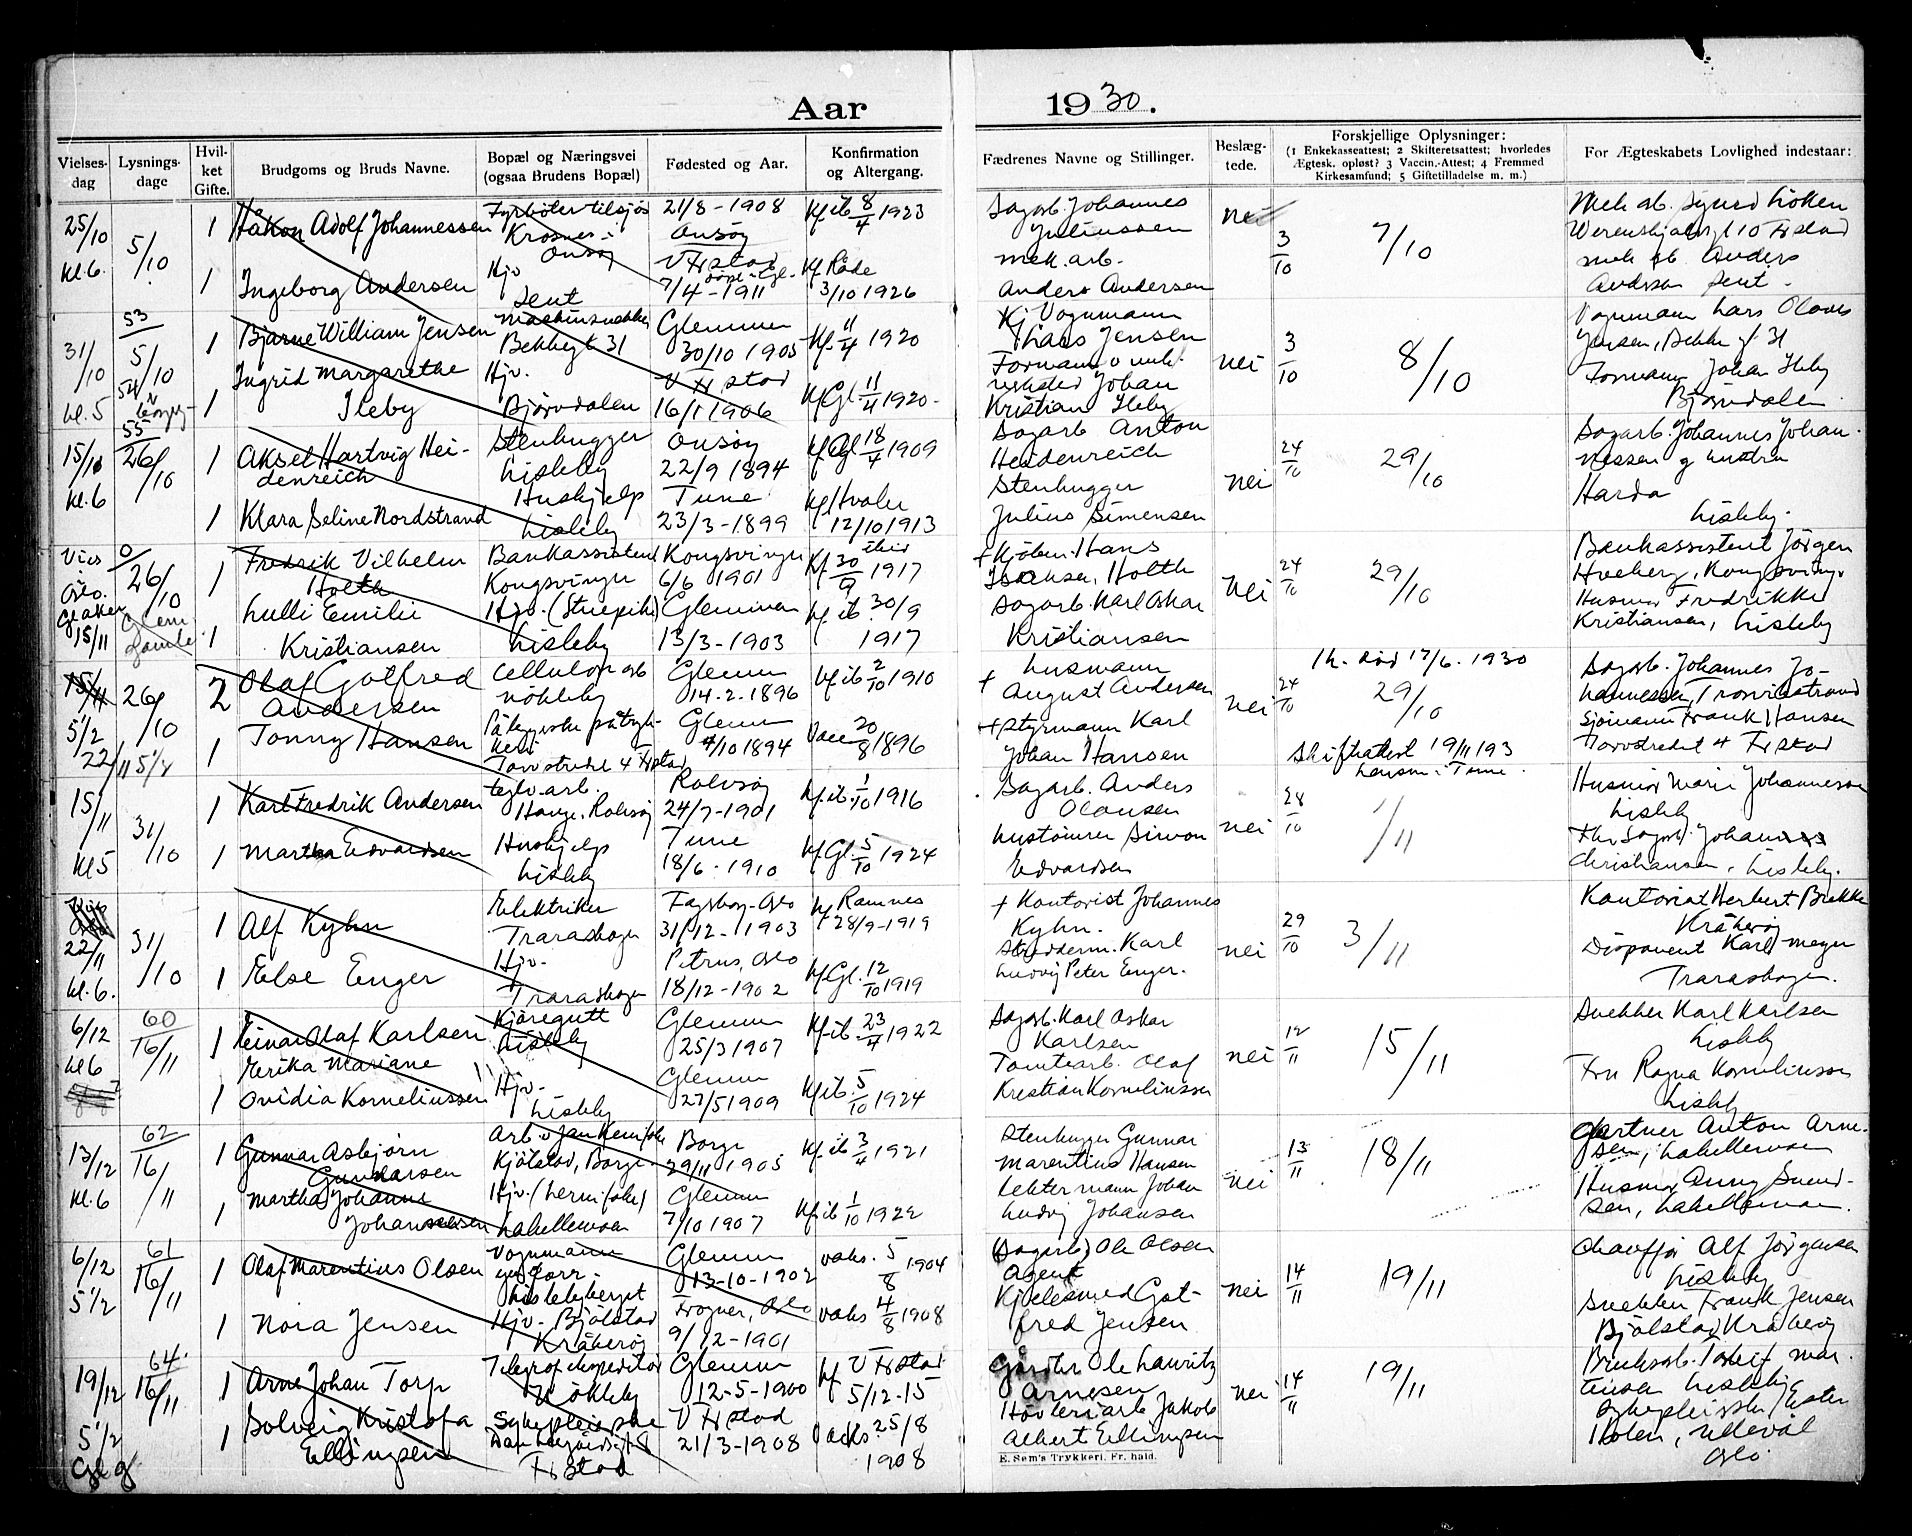 Aar
1930.
Vielses-dag
Lysnings-dage
Hvil-ket Gifte.
Brudgoms og Bruds Navne.
Bopæl og Næringsvei (ogsaa Brudens Bopæl)
Fødested og Aar.
Konfirmation og Altergang.
Fædrenes Navne og Stillinger.
Beslæg-tede.
Forskjellige Oplysninger:
(1 Enkekasseattest; 2 Skifteretsattest; hvorledes
Ægtesk. opløst? 3 Vaccin.-Attest; 4 Fremmed
Kirkesamfund; 5 Giftetilladelse m. m.)
For Ægteskabets Lovlighed indestaar:
25/10 kl. 6 5/10
1 Håkon Adolf Johannessen
Fyrbøter tilsjøs
Krosnes - Onsøy
21/8 - 1908
Onsøy
Kf. ib. 8/4 1923
Sagarb. Johannes
Juliussen
nei
3/10
7/10
1 Ingeborg Andersen
Hjv.
V Frstad
7/4 - 1911
Kf. Råde
3/10 1926
mek. arb.
Anders Andersen
mek. arb. Anders
31/10 kl. 5
53
5/10
54
1 Bjarne William Jensen
Glemmen
30/10 1905
Kf. 11/4 1920
Kj Vognmann
Lars Jensen
nei
3/10
8/10
Vognmann Lars Olaves
1 Ingrid Margarethe
Ileby
Hjv.
Bjørndalen
V Frstad
16/1 1906
Kf. Gl. 11/4 1920 -
Johan
Kristian Ileby
Formann Johan Ileby
Bjørndalen
55
15/11 kl. 6
26/10
1 Aksel Hartvig Hei-
denreich
Stenhugger
Lisleby
Onsøy
22/9 1894
Kf. Gl 18/4 1909
Sagarb Anton
Heidenreich
nei
24/10
29/10
Sagarb. Johannes Johan-
nessen og hustru
Harda
Lisleby.
1 Klara Seline Nordstrand
Hushjelp
Lisleby
Tune
23/3 - 1899
Kf Hvaler
12/10 1913
Stenhugger
Julius Simensen
Vies
Oslo.
15/11
26/10
1 Fredrik Vilhelm
Holth
Bankassistent
Kongsvinger
Kongsvinger
6/6 1901
Kf. 30/9 1917
+ Kjøbm. Hans
Holth
nei
24/10
29/10
Bankassistent Jörgen
Hveberg, Kongsvinger
1 Lulli Emilie
Kristiansen
Lisleby
Glemmen
13/3 - 1903
Kf. ib. 30/9
1917
Sagarb. Karl Oskar
Kristiansen
Husmor Fredrikke
Kristiansen, Lisleby
26/10
5 1/2
22/11
2 Olaf Gotfred
Andersen
Cellulosearb
Nøkleby
Glemm
14.2.1896
Kf ib 2/10 1910
+ Husmann
August Andersen
nei
24/10
29/10
1 h. død 17/6. 1930
Sagarb. Johannes Jo-
hannessen, Trosvikstrand
1 Tonny Hansen
Torvstredet 4 Frstad
Glemm
7/10 1894
Vacc 20/8 1896
+ Styrmann Karl
Johan Hansen
Skifteattest 19/11 193
Sjømann Frank Hansen
Torvstredet 4 Frstad
15/11 kl 5
31/10
1 Karl Fredrik Andersen
teglv. arb.
Hauge, Rolvsøy
Rolvsøy
24/7 - 1901
Kf. ib. 1/10 1916
Sagarb. Anders
Olausen
nei
28/10
1/11
Husmor Marie Johannessen
Lisleby
1 Martha Edvardsen
Hushjelp
Lisleby
Tune
18/6 - 1910
Kf. Gl. 5/10 1924
Simon
Edvardsen
Christiansen, Lisleby.
22/11 kl. 6.
31/10
1 Alf Kyhn
Elektriker
Traraskogen
Fagerborg - Oslo
31/12 - 1903
Kf Ramnes
28/9 - 1919
+ Kontorist Johannes
Kyhn.
nei
29/10
3/11
Kontorist Herbert Brekke
Kråkerøy
1 Else Enger
Hjv.
Traraskogen
Petrus, Oslo
18/12 - 1902
Kf. Gl. 12/10 1919
Karl
Ludvig Peter Enger.
Disponent Karl Meyer
Traraskogen.
6/12 kl 6
60
16/11
1 Einar Olaf Karlsen
Kjøregutt
Lisleby
Glemm
25/3 1907
Kf. ib. 23/4 1922
Sagarb. Karl Oskar
Karlsen
nei
12/11
15/11
Snekker Karl Karlsen
Lisleby
1 Erika Mariane
Ovidia Korneliussen
Hjv.
Lisleby
Glemm
27/5 1909
Kf ib. 5/10 1924
Tomtearb. Olaf
Kristian Korneliussen
Fru Ragna Korneliussen
Lisleby
13/12 kl. 6
62
16/11
1 Gunnar Asbjørn
Gundersen
Kjølstad, Borge
Borge
29/11 1905
Kf. ib 3/4 1921
Stenhugger Gunnar
Marentius Hansen
nei
13/11
18/11
Gartner Anton Arne-
sen, Labellemoen
1 Martha Johanne
Johansen
Labellemoen
Glemm
7/10 1907
Kf. ib 1/10 1922
Johan
Ludvig Johansen
Husmor Anny Svend-
sen, Labellemoen.
6/12 5 1/2
61
16/11
1 Olaf Marentius Olsen
Vognmann
Lislebyberget
Glemm
13-10-1902
vaks. 5/8 1904
(Sagarb) Ole Olsen
Agent
nei
14/11
19/11
Chauffør Alf Jörgensen
Lisleby
1 Nora Jensen
Hjv. Bjølstad
Kråkerøy
Frogner, Oslo
9/12 - 1901
vaks 4/8 1908
Kjelesmed Got-
fred Jensen
Snekker Frank Jensen
Bjølstad Kråkerøy
19/12 5 1/2
64.
16/11
1 Arne Johan Torp
Telegrafekspeditør
Nökleby
Glemm
12-5-1900
Kf V Frstad
5/12-15
Gårdbr Ole Lauritz
Arnesen
nei
14/11
19/11
Lisleby
1 Solveig Kristofa
Ellingsen
Sykepleierske
Frstad
V Frstad
21/3-1908
Vacks. 25/8
1908
Høvleriarb Jakob
Albert Ellingsen
Sykepleierske Ester
Holen, Ullevål
Oslo
E. Sem's Trykkeri, Fr.hald.